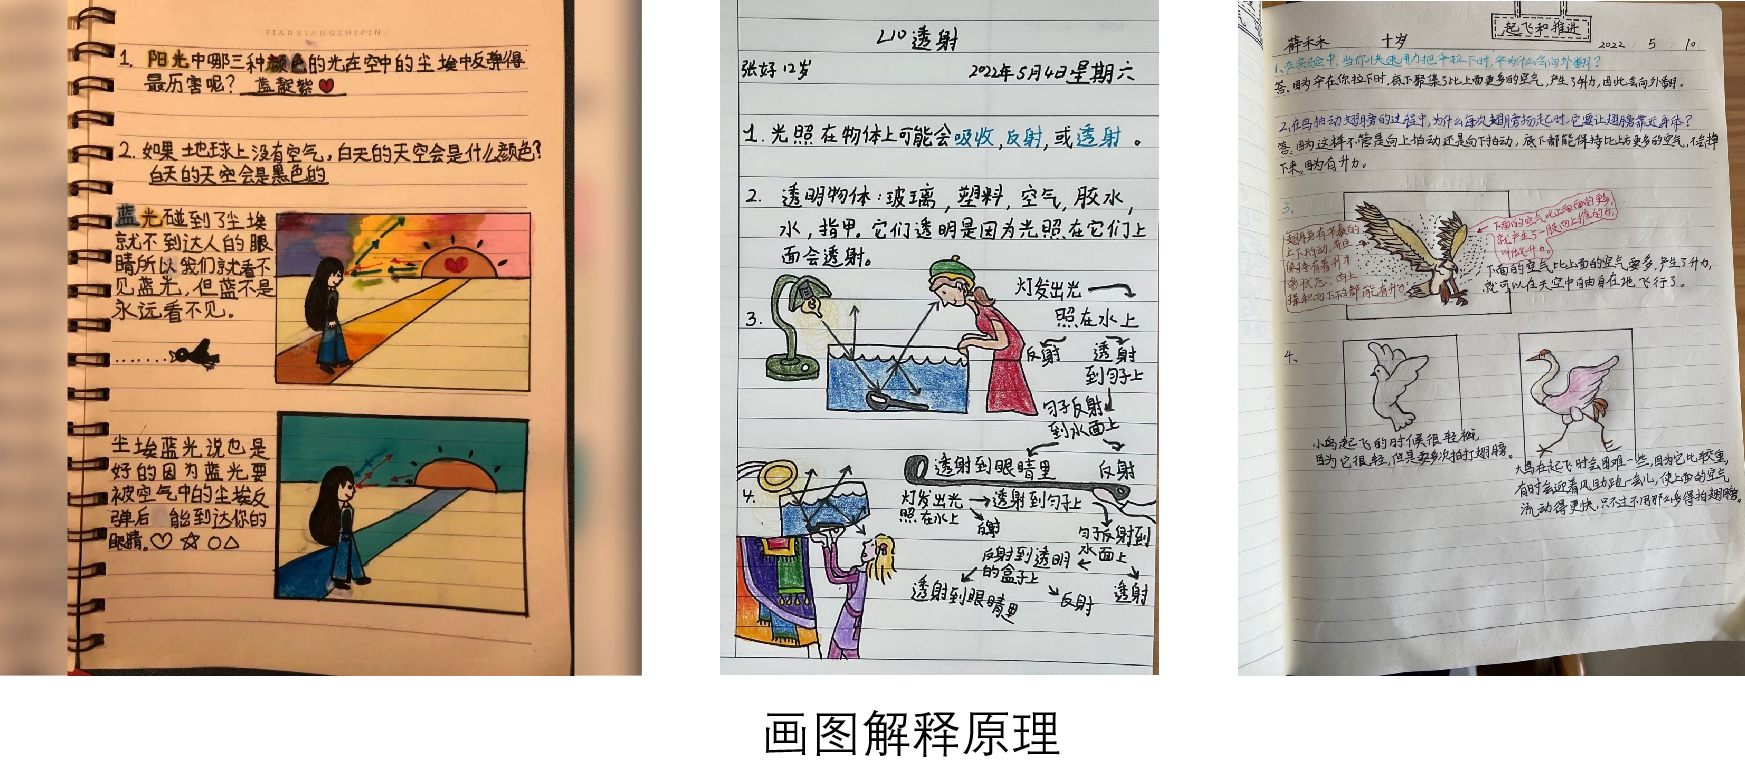 TIANXIANGZHIPIN
1. 阳光中哪三种颜色的光在空中的尘埃中反弹得
最厉害呢? 蓝靛紫
2. 如果地球上没有空气,白天的天空会是什么颜色?
白天的天空会是黑色的
蓝光碰到了尘埃
就不到达人的眼
睛所以我们就看不
见蓝光,但蓝不是
永远看不见。
尘埃蓝光说也是
好的因为蓝光要
被空气中的尘埃反
弹后 能到达你的
眼睛。
L10 透射
张好 12岁 2022年5月4日星期六
1. 光照在物体上可能会吸收,反射,或透射。
2. 透明物体:玻璃,塑料,空气,胶水,
水,指甲。它们透明是因为光照在它们上
面会透射。
3.
灯发出光
照在水上
反射 透射
到勺子上
勺子反射
到水面上
透射到眼睛里 反射
4.
灯发出光 透射到勺子上
照在水上
反射
勺子反射到
水面上
反射到透明
的盒子上
透射到眼睛里 反射 透射
起飞和推进
薛禾禾 十岁 2022 5 10
1、在实验中,当你快速用力把伞拉下时,伞为什么会向外翻?
答:因为伞在你拉下时,底下聚集了比上面更多的空气,产生了升力,因此会向外翻。
2、在鸟拍动翅膀的过程中,为什么每次翅膀扬起时,它要让翅膀靠近身体?
答:因为这样不管是向上拍动还是向下拍动,底下都能保持比上方更多的空气,不会掉
下来,因为有升力。
3、
下面的空气比上面的空气要多,产生了升力,
就可以在天空中自由自在地飞行了。
4、
小鸟起飞的时候很轻松
因为它很轻,但是要多次拍打翅膀。
大鸟在起飞时会困难一些,因为它比较重,
有时会迎着风助跑一会儿,使上面的空气
流动得更快,只不过不用那么多得拍翅膀。
画图解释原理